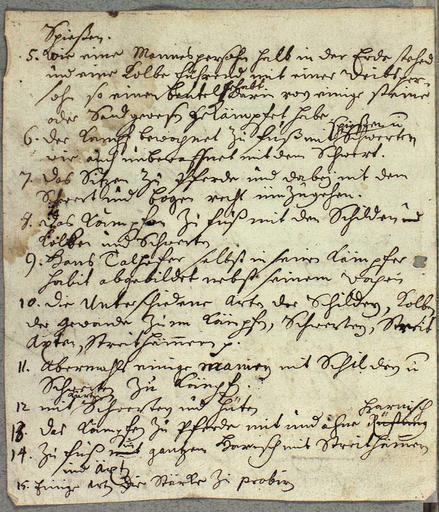 Spießen.
5. Wie eine Mannspersohn halb in der Erde stehend
und eine Kolbe führend mit einer Weibsper-
sohn so einen beutel gehabt darin von einige steine
oder gekämpfet habe
6. der Kampf zu fuß mit Spießen u Schwerten
wie auch mit dem Schwert.
7. das Sitzen zu Pferde und dabei mit dem
Schwert und bogen recht umzugehen
8. das Kämpfen zu fuß mit den Schilden und
Kolben und Schwerten
9. Hans Talhofer selbst in seinen Kämpfer
habit abgebildet nebst seinem Wapen
10. die Unterschiedene Arten der Schilden, Kolben
der gewande zum Kämpfen, Schwerten, Streit
Axten, Streithämmern p.
11. Abermahl einige manier mit Schilden u
Schwerten zu Kämpfen.
12 mit Schwerten und
13. das Kämpfen zu Pferde mit und ohne Harnisch
14. Zu fuß mit ganzen Harnisch mit Streithämmern
und äxt
15. Einige art der Stärke zu probirn